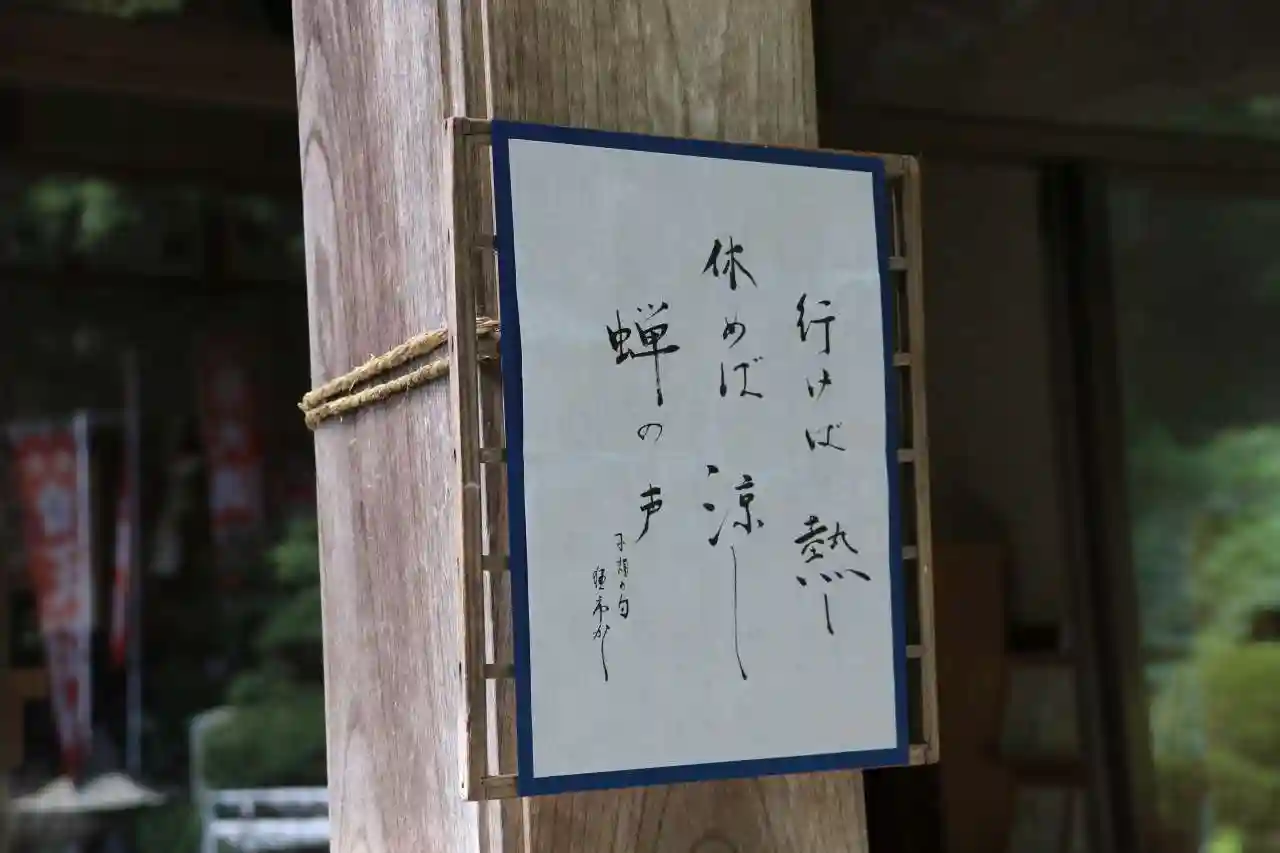 行けば熱し
休めば涼し
蝉の声
子規の句